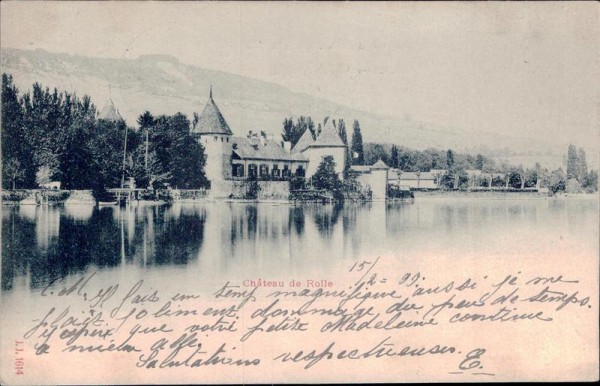 Château de Rolle
15/2-99.
C. M. Il fait un temps magnifique aussi je me
plais joliment, dommage du peu de temps.
J'espère que votre petite Madeleine continue
à mieux aller.
Salutations respectueuses. E.
J.J. 1614